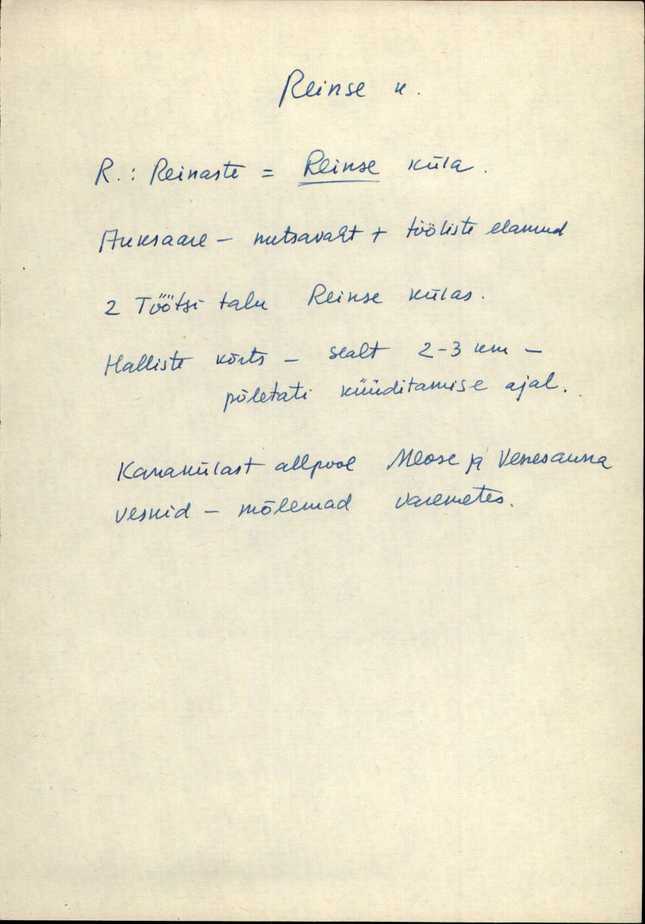 Reinse k.
R.: Reinaste = Reinse küla.
Auksaare - metsavaht + tööliste elamud
2 Töötsi talu Reinse külas.
Halliste kõrts - sealt 2-3 km -
põletati küüditamise ajal.
Kanakülast allpool Meose ja Venesauna
veskid - mõlemad varemetes.